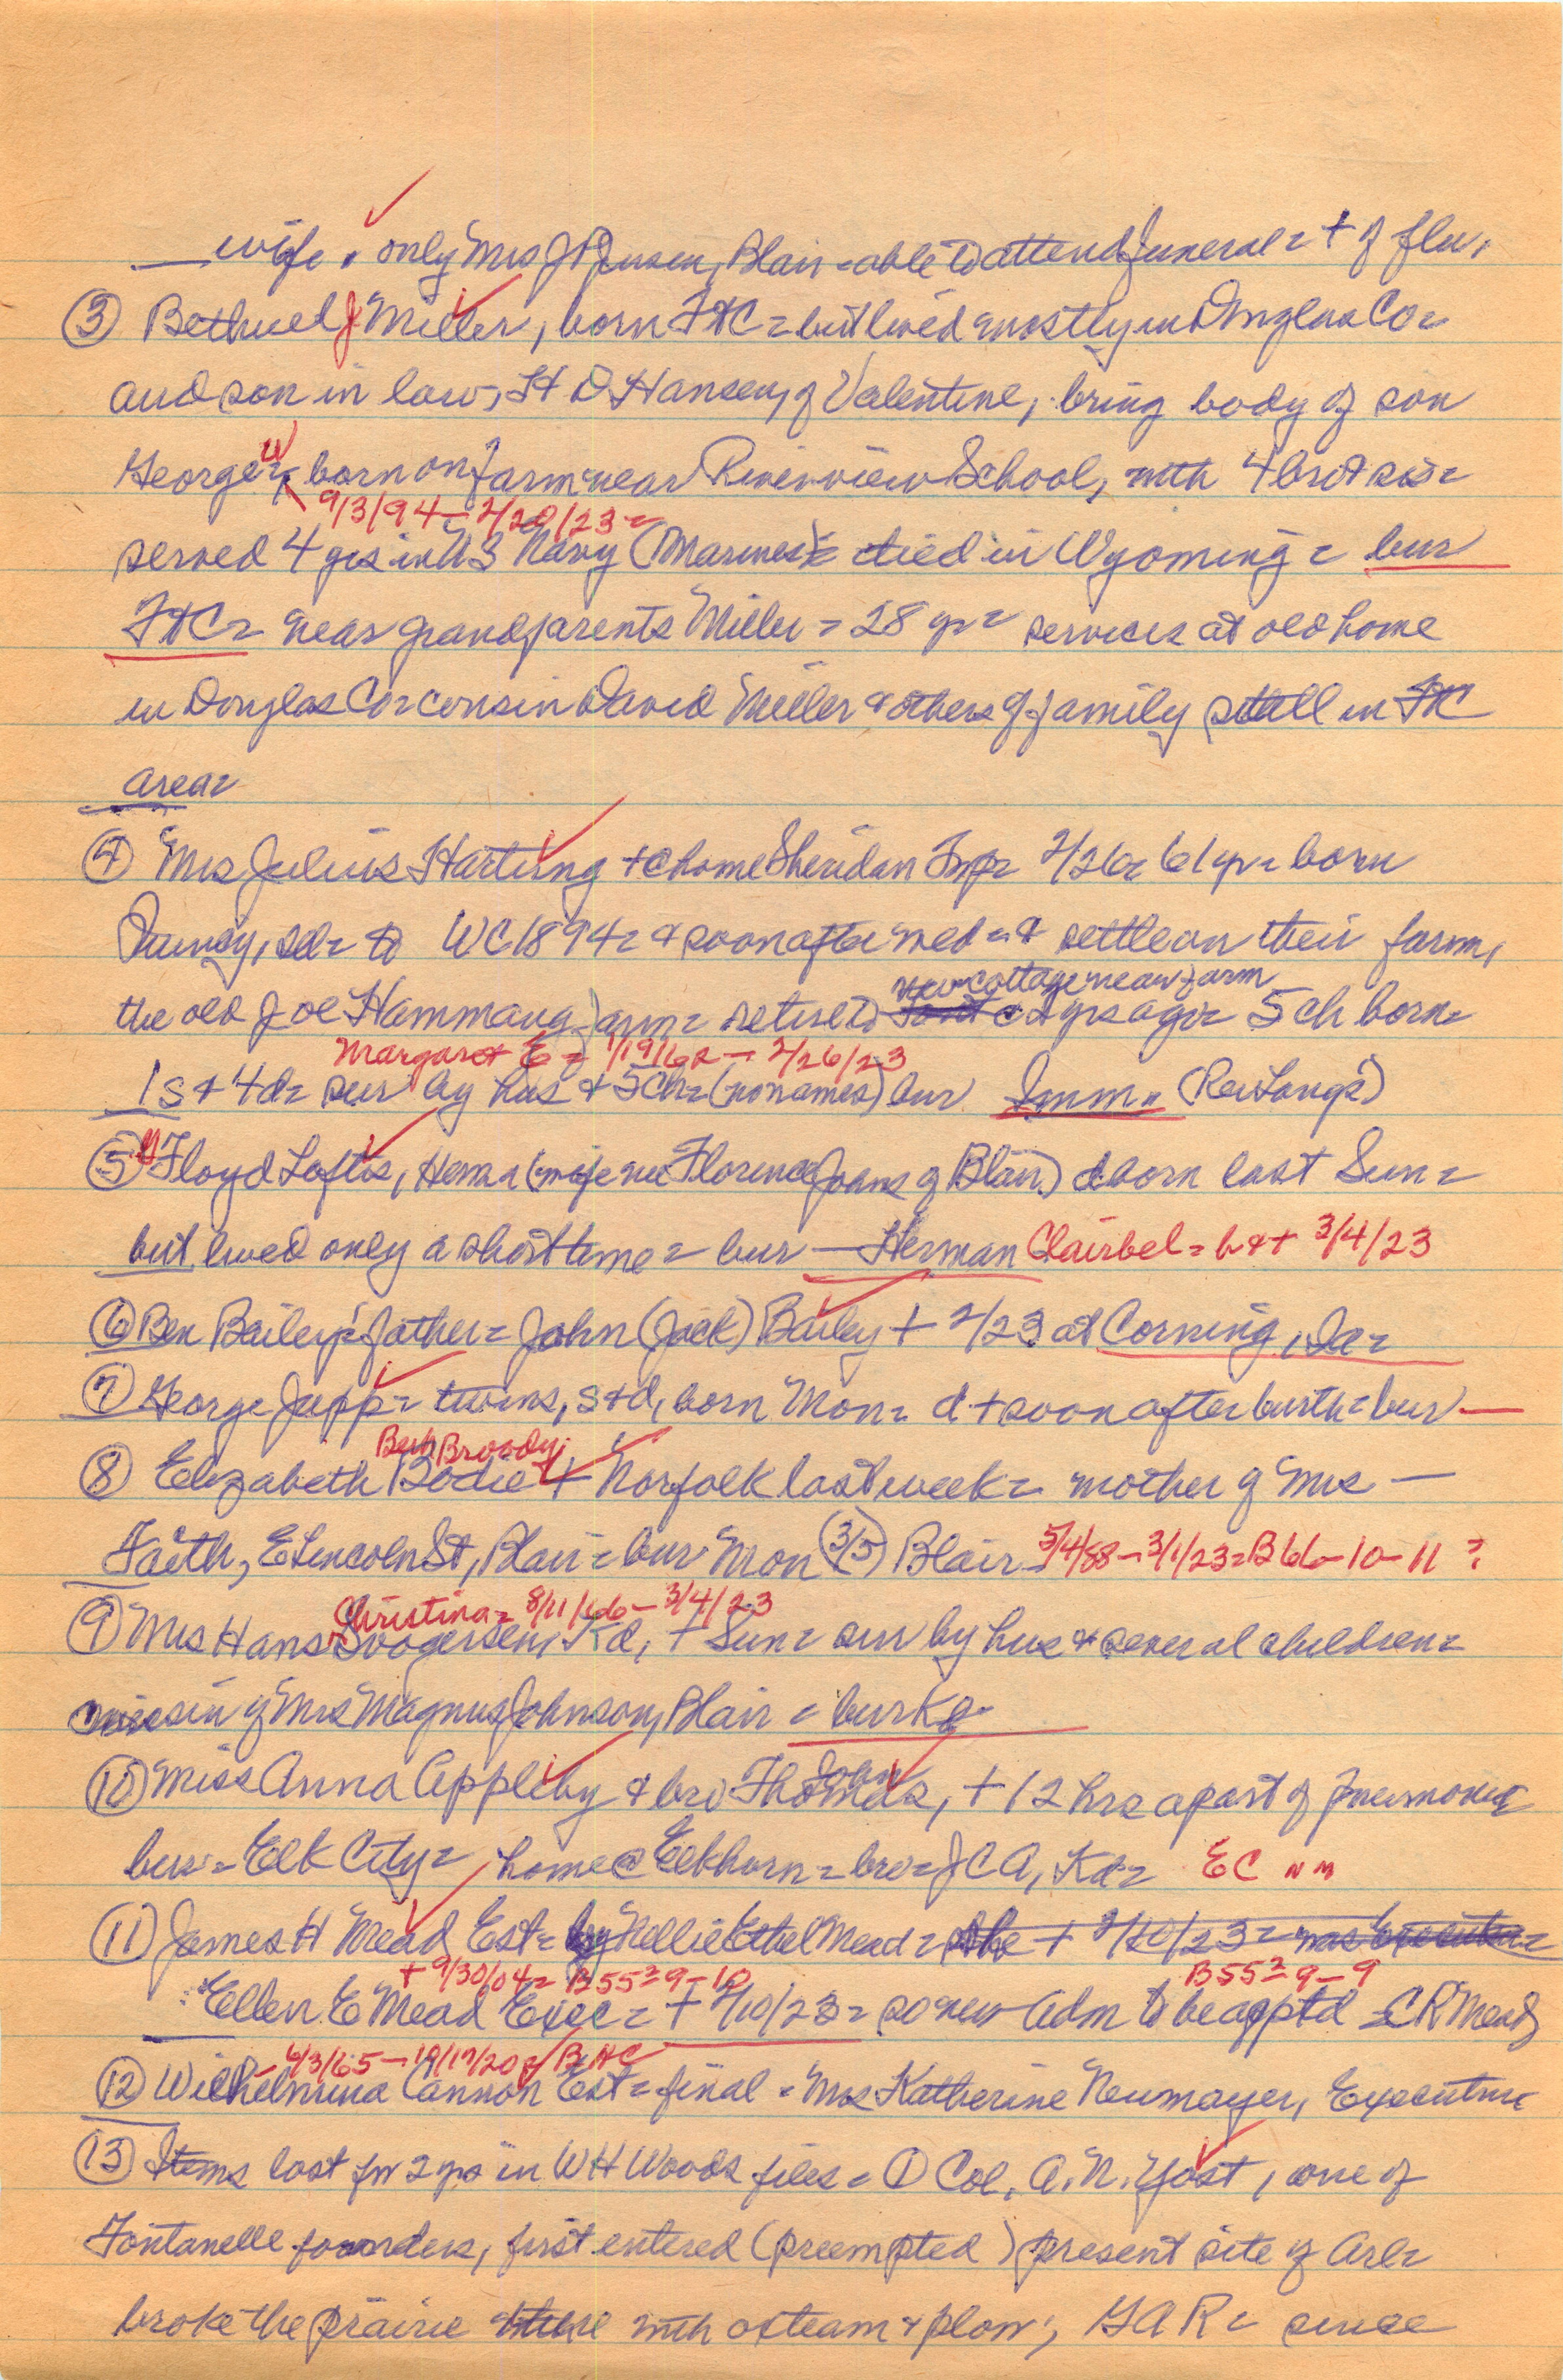 wife. only Mrs J P Jensen, Blair = able to attend funeral = + of flu,
③ Bethuel J Miller, born FtC = but lived mostly in Douglas Co =
and son in law, H D Hansen, of Valentine, bring body of son
George W, born on farm near Riverview School, with 4 bro & sis =
9/3/94 – 2/20/23 =
served 4 yrs in US Navy (Marines) = died in Wyoming = bur
FtC = near grandparents Miller = 28 yr = services at old home
in Douglas Co = cousin David Miller & others of family still in FtC
area =
④ Mrs Julius Hartung + @ home Sheridan Twp = 2/26 = 61 yr = born
Germany, sd = to WC 1894 = & soon after wed = & settle on their farm,
new cottage near farm
the old Joe Hammang farm = retire to 2 yrs ago = 5 ch born =
Margaret E = 1/19/62 – 2/26/23
1 s & 4 d = sur by hus & 5 ch = (no names) bur Imm. (Rev Lang's)
⑤ Floyd Loftis, Herman (wife nee Florence Johns of Blair) d born last Sun =
but lived only a short time = bur — Herman Clairbel = b & + 3/4/23
⑥ Ben Bailey's father = John (Jack) Bailey + 2/23 at Corning, Ia =
⑦ George Jupp = twins, s & d, born Mon = d + soon after birth = bur —
Beth Broody
⑧ Elizabeth Bodie + Norfolk last week = mother of Mrs —
Faith, E Lincoln St, Blair = bur Mon (3/5) Blair – 5/4/88 – 3/1/23 = B 66 – 10 – 11 ?
Christina = 8/11/66 – 3/4/23
⑨ Mrs Hans Svogersen, Kd, + Sun = sur by hus & several children =
cousin of Mrs Magnus Johnson, Blair = bur Kd =
John
⑩ Miss Anna Appleby & bro Thomas, + 12 hrs apart of pneumonia
bur = Elk City = home @ Elkhorn = bro = J C A, Kd = EC nm
⑪ James H Mead Est = by Nellie Ethel Mead = she + 2/10/23 = was Executrix =
+ 9/30/04 = B 55 = 9 – 10 B 55 = 9 – 9
Ellen E Mead Exec = + 2/10/23 = so new adm to be apptd – C R Mead
6/3/65 – 10/19/20 = B NC
⑫ Wilhelmina Cannon Est = final = Mrs Katherine Neumayer, Executrix
⑬ Items lost for 2 yrs in W H Woods files = ① Col. A. N. Yost, one of
Fontanelle founders, first entered (preempted) present site of Arl =
broke the prairie there with ox team & plow; GAR = since